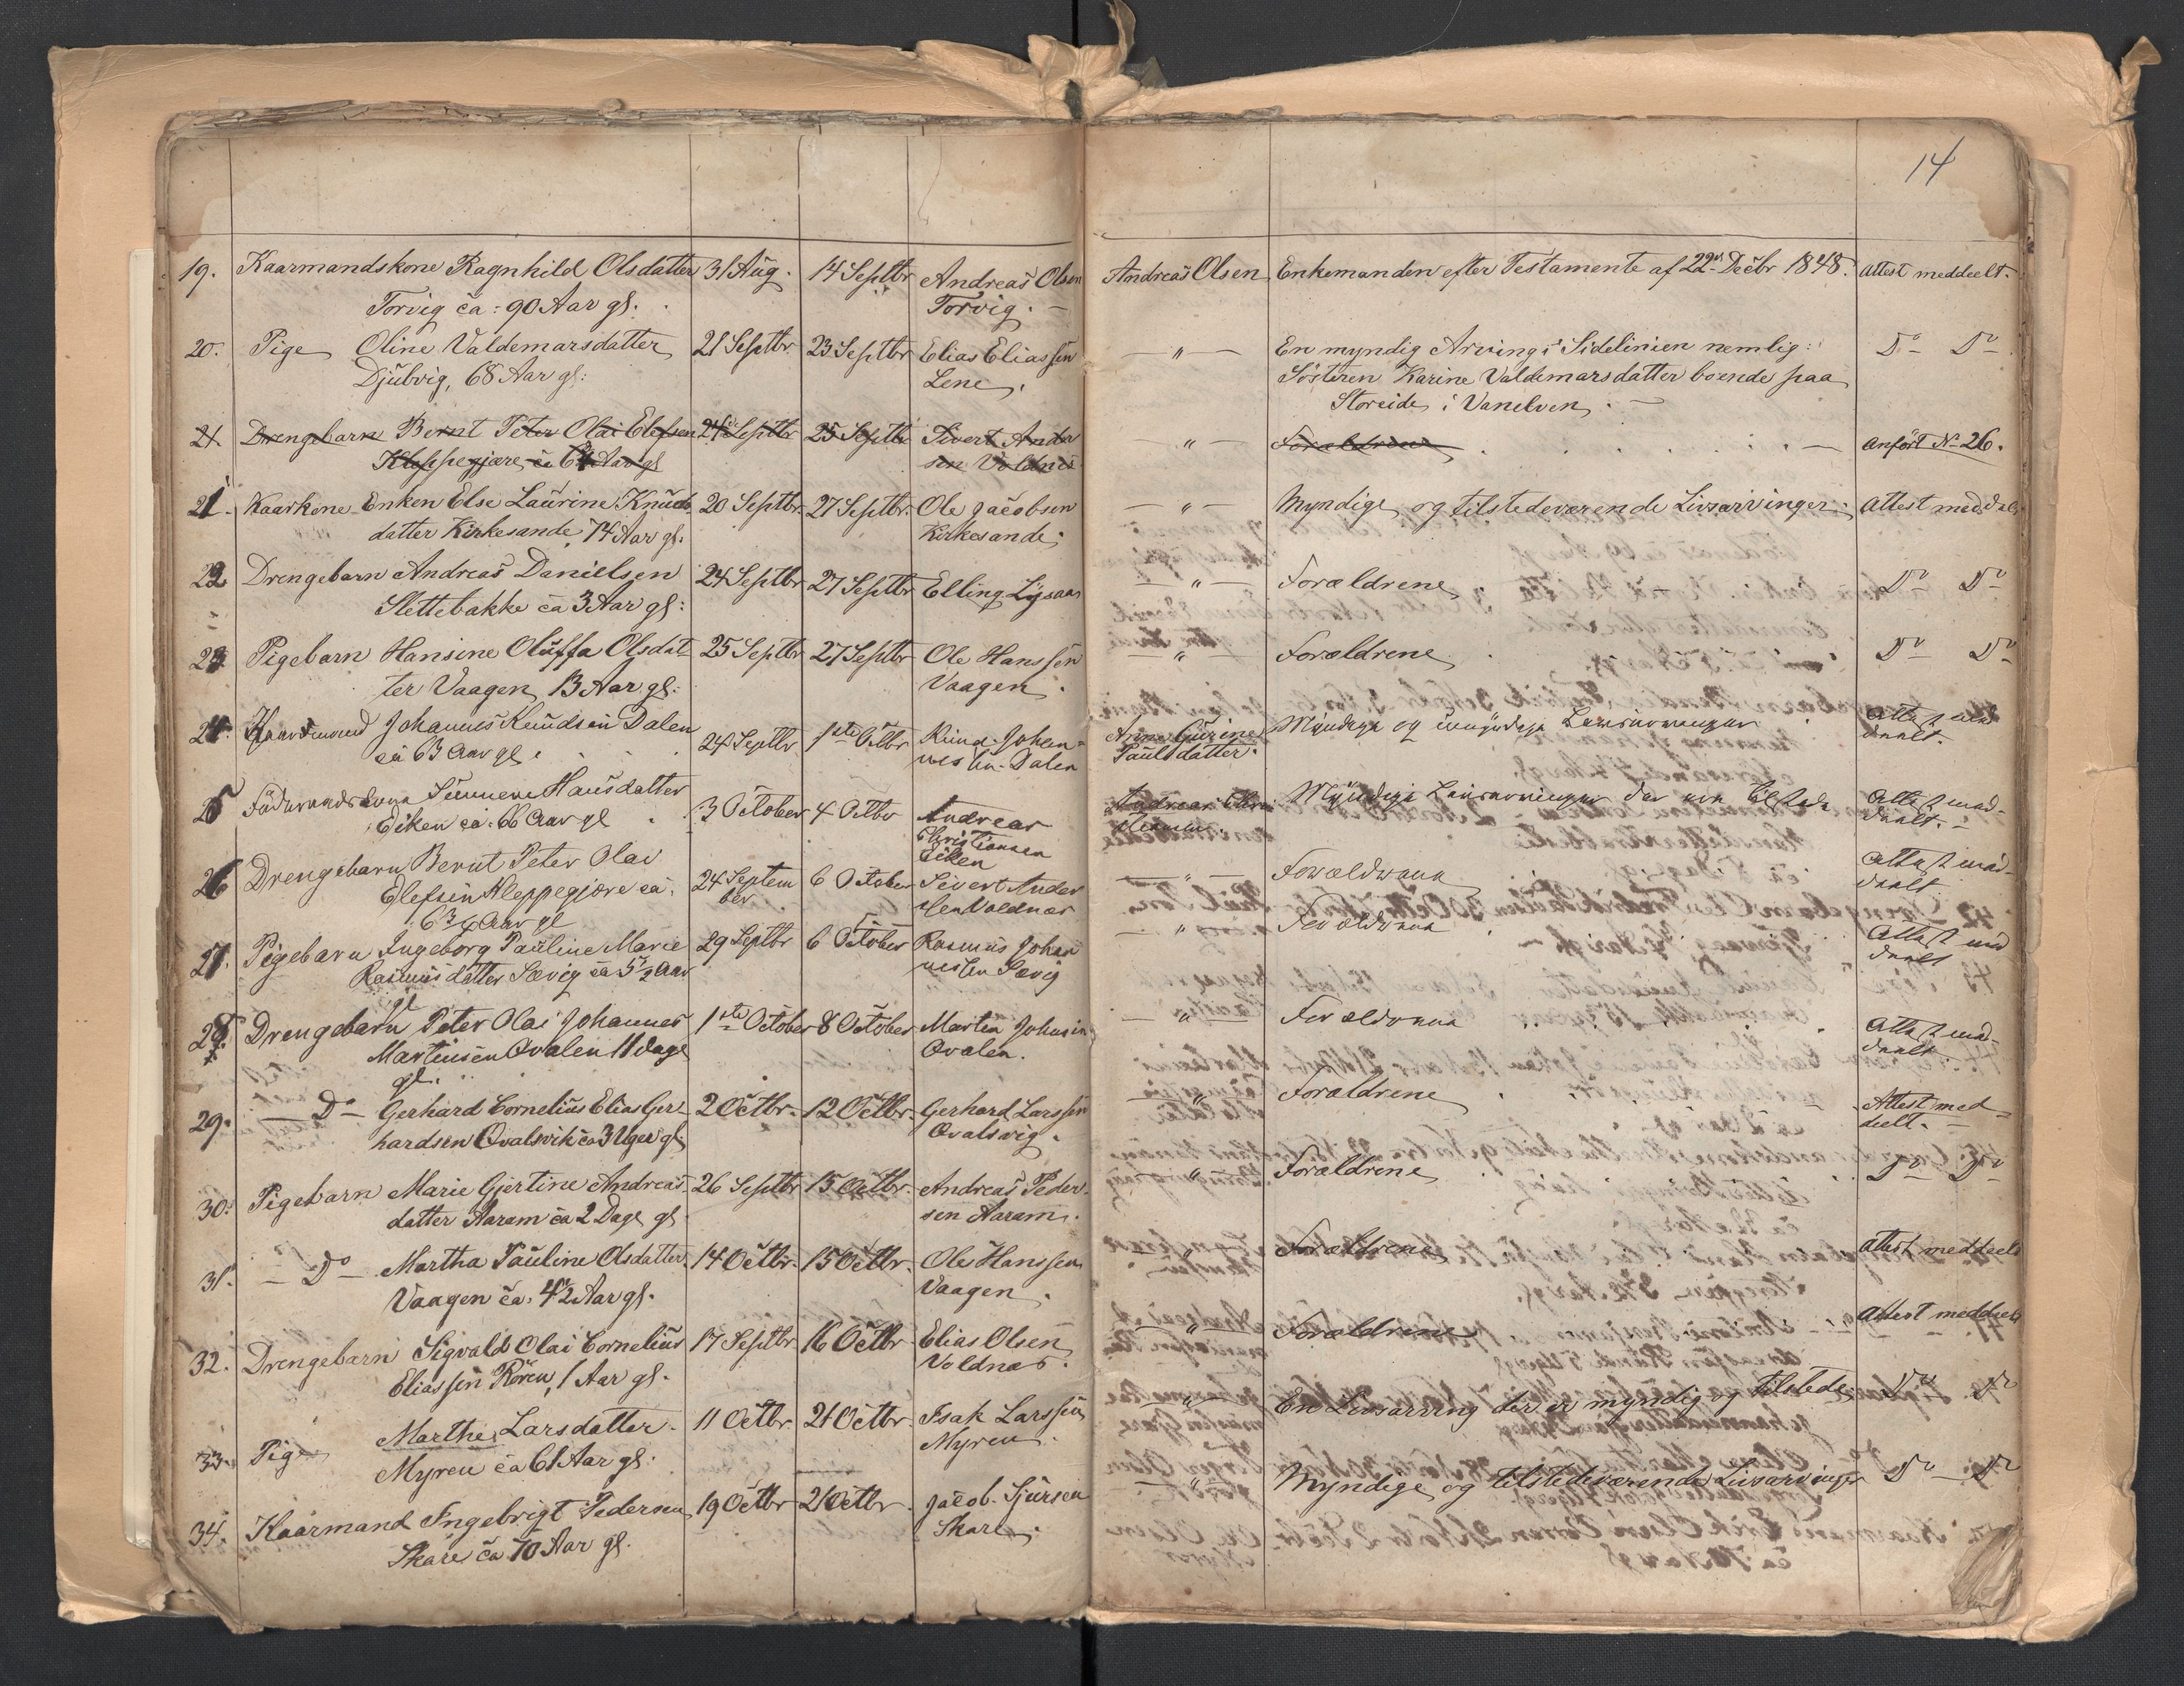 14
19. Kaarmandskone Ragnhild Olsdatter 31 Aug. 14 Septbr Andreas Olsen Andreas Olsen Enkemanden efter Testamente af 22de Decbr 1848. Attest meddeelt.
Torvig ca: 90 Aar gl. Torvig. —
20. Pige Oline Valdemarsdatter 21 Septbr. 23 Septbr Elias Eliassen — " — En myndig Arving i Sidelinien nemlig: Do — Do —
Djubvig, 68 Aar gl: Lene. Søsteren Karine Valdemarsdatter boende paa
Storeide i Vanelven. —
21. Drengebarn Bernt Peter Olai Elefsen 24de Septbr 25 Septbr Sivert Ander — " — Forældrene . . . . — Anført No 26.
Kleppegjære, ca 6¾ Aar gl sen Voldnæs
21. Kaarkone-Enken Else Laurine Knuds 20 Septbr. 27 Septbr. Ole Jacobsen — " — Myndige og tilstedeværende Livsarvinger. Attest meddelt
datter Kirkesande, 74 Aar gl. Kirkesande.
22 Drengebarn Andreas Danielsen 24 Septbr 27 Septbr Elling — " — Forældrene. Do — Do —
Slettebakke ca 3 Aar gl:
23 Pigebarn Hansine Oluffa Olsdat 25 Septbr 27 Septbr Ole Hanssen — " — Forældrene. Do — Do —
ter Vaagen, 13 Aar gl: Vaagen.
24. Kaardmand Johannes Knudsen Dalen 24 Septbr 1ste Octbr Knud Johan= Anne Gurine Myndige og umyndige Livsarvinger Attest med
ca 63 Aar gl. nessen Dalen Paulsdatter. deelt.
25 Føderaadskone Sunneve Hansdatter 3 October 4 Octbr Andreas Myndige Livsarvinger der ere tilstede Attest med-
Eiken ca. 66 Aar gl Christiansen deelt. —
Eiken
26 Drengebarn Bernt Peter Olai 24 Septem 6 October Sivert Ander — " — Forældrene Attest med-
Elefsen Kleppegjære ca. ber sen Voldnæs deelt
6¾ Aar gl
27. Pigebarn Ingeborg Pauline Marie 29 Septbr 6 October Rasmus Johan — " — Forældrene Attest med
Rasmusdatter Sævig ca 5½ Aar nessen Sævig deelt
gl
28. Drengebarn Peter Olai Johannes 1ste October 8 October Martin Johnsen — " — Forældrene Attest med-
Martinsen Ovalen 11 dage Ovalen. deelt
gl.
29. — Do — Gerhard Cornelius Elias Ger- 2 Octbr. 12 Octbr. Gerhard Larssen — " — Forældrene Attest med=
hardsen Qvalsvik ca 3 Uger gl. Qvalsvig. deelt. —
30. Pigebarn Marie Gjertine Andreas- 26 Septbr 15 Octbr. Andreas Peder- — " — Forældrene Do — Do —
datter Aaram ca 2 Dage gl. sen Aaram.
31. — Do — Martha Pauline Olsdatter 14 Octbr. 15 Octbr. Ole Hanssen — " — Forældrene Attest meddeelt
Vaagen ca. 4½ Aar gl. Vaagen.
32. Drengebarn Sigvald Olai Cornelius 17 Septbr 16 Octbr Elias Olsen — " — Forældrene Attest meddeelt
Eliassen Røren, 1 Aar gl. Voldnæs.
33. Pige Marthe Larsdatter. 11 Octbr. 21 Octbr Isak Larssen — " — En Livsarving der er myndig og tilstede Do — Do
Myren ca 61 Aar gl. Myren.
34. Kaarmand Ingebrigt Pedersen 19 Octbr 21 Octbr. Jacob Sjursen — " — Myndige og tilstedeværende Livsarvinger Do — Do
Skare ca 70 Aar gl. Skare.